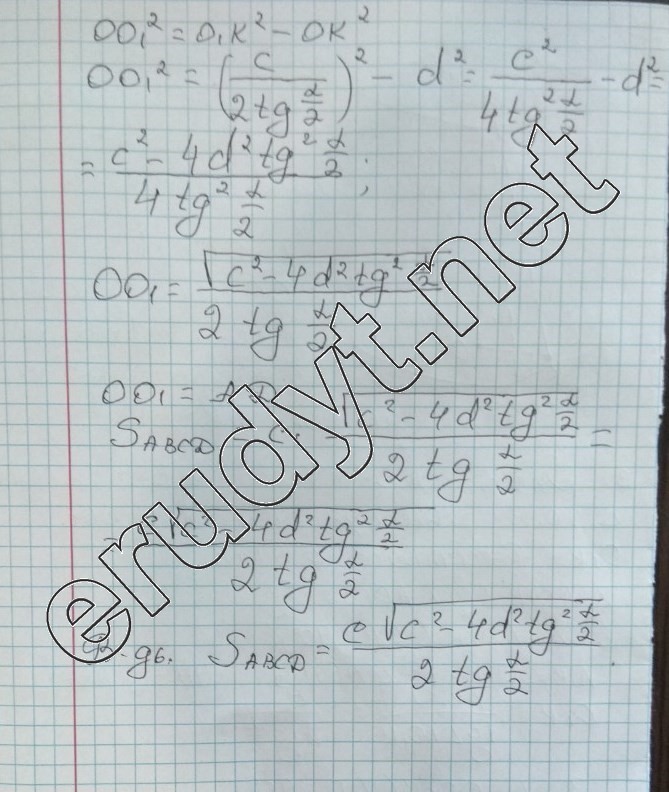 OO₁² = O₁K² - OK²
OO₁² = (c / (2 tg α/2))² - d² = c² / (4 tg² α/2) - d² =
= (c² - 4d² tg² α/2) / (4 tg² α/2) ;
OO₁ = √(c² - 4d² tg² α/2) / (2 tg α/2)
OO₁ = AD
S_ABCD = c · √(c² - 4d² tg² α/2) / (2 tg α/2) =
√(c² - 4d² tg² α/2) / (2 tg α/2)
S_ABCD = c √(c² - 4d² tg² α/2) / (2 tg α/2) .
erudyt.net